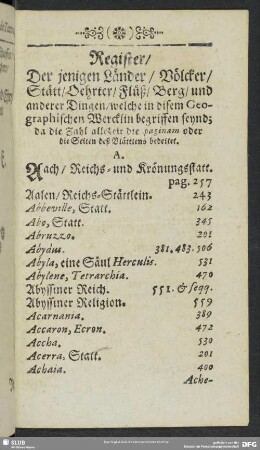 Register/
Der jenigen Länder/ Völcker/
Stätt/ Oehrter/ Flüß/ Berg/ und
anderer Dingen/ welche in disem Geo-
graphischen Wercklin begriffen seynd;
da die Zahl allezeit die paginam oder
die Seiten deß Blättleins bedeitet.
A.
Aach/ Reichs- und Krönungsstatt.
pag. 257
Aalen/ Reichs-Stättlein. 243
Abbeville, Statt. 162
Abo, Statt. 345
Abruzzo. 201
Abydus. 381. 483. 506
Abyla, eine Säul Herculis. 531
Abylene, Tetrarchia. 470
Abyssiner Reich. 551. & seqq.
Abyssiner Religion. 559
Acarnania. 389
Accaron, Ecron. 472
Accha. 530
Acerra, Statt. 201
Achaia. 400
Ache-
SLUB
DFG